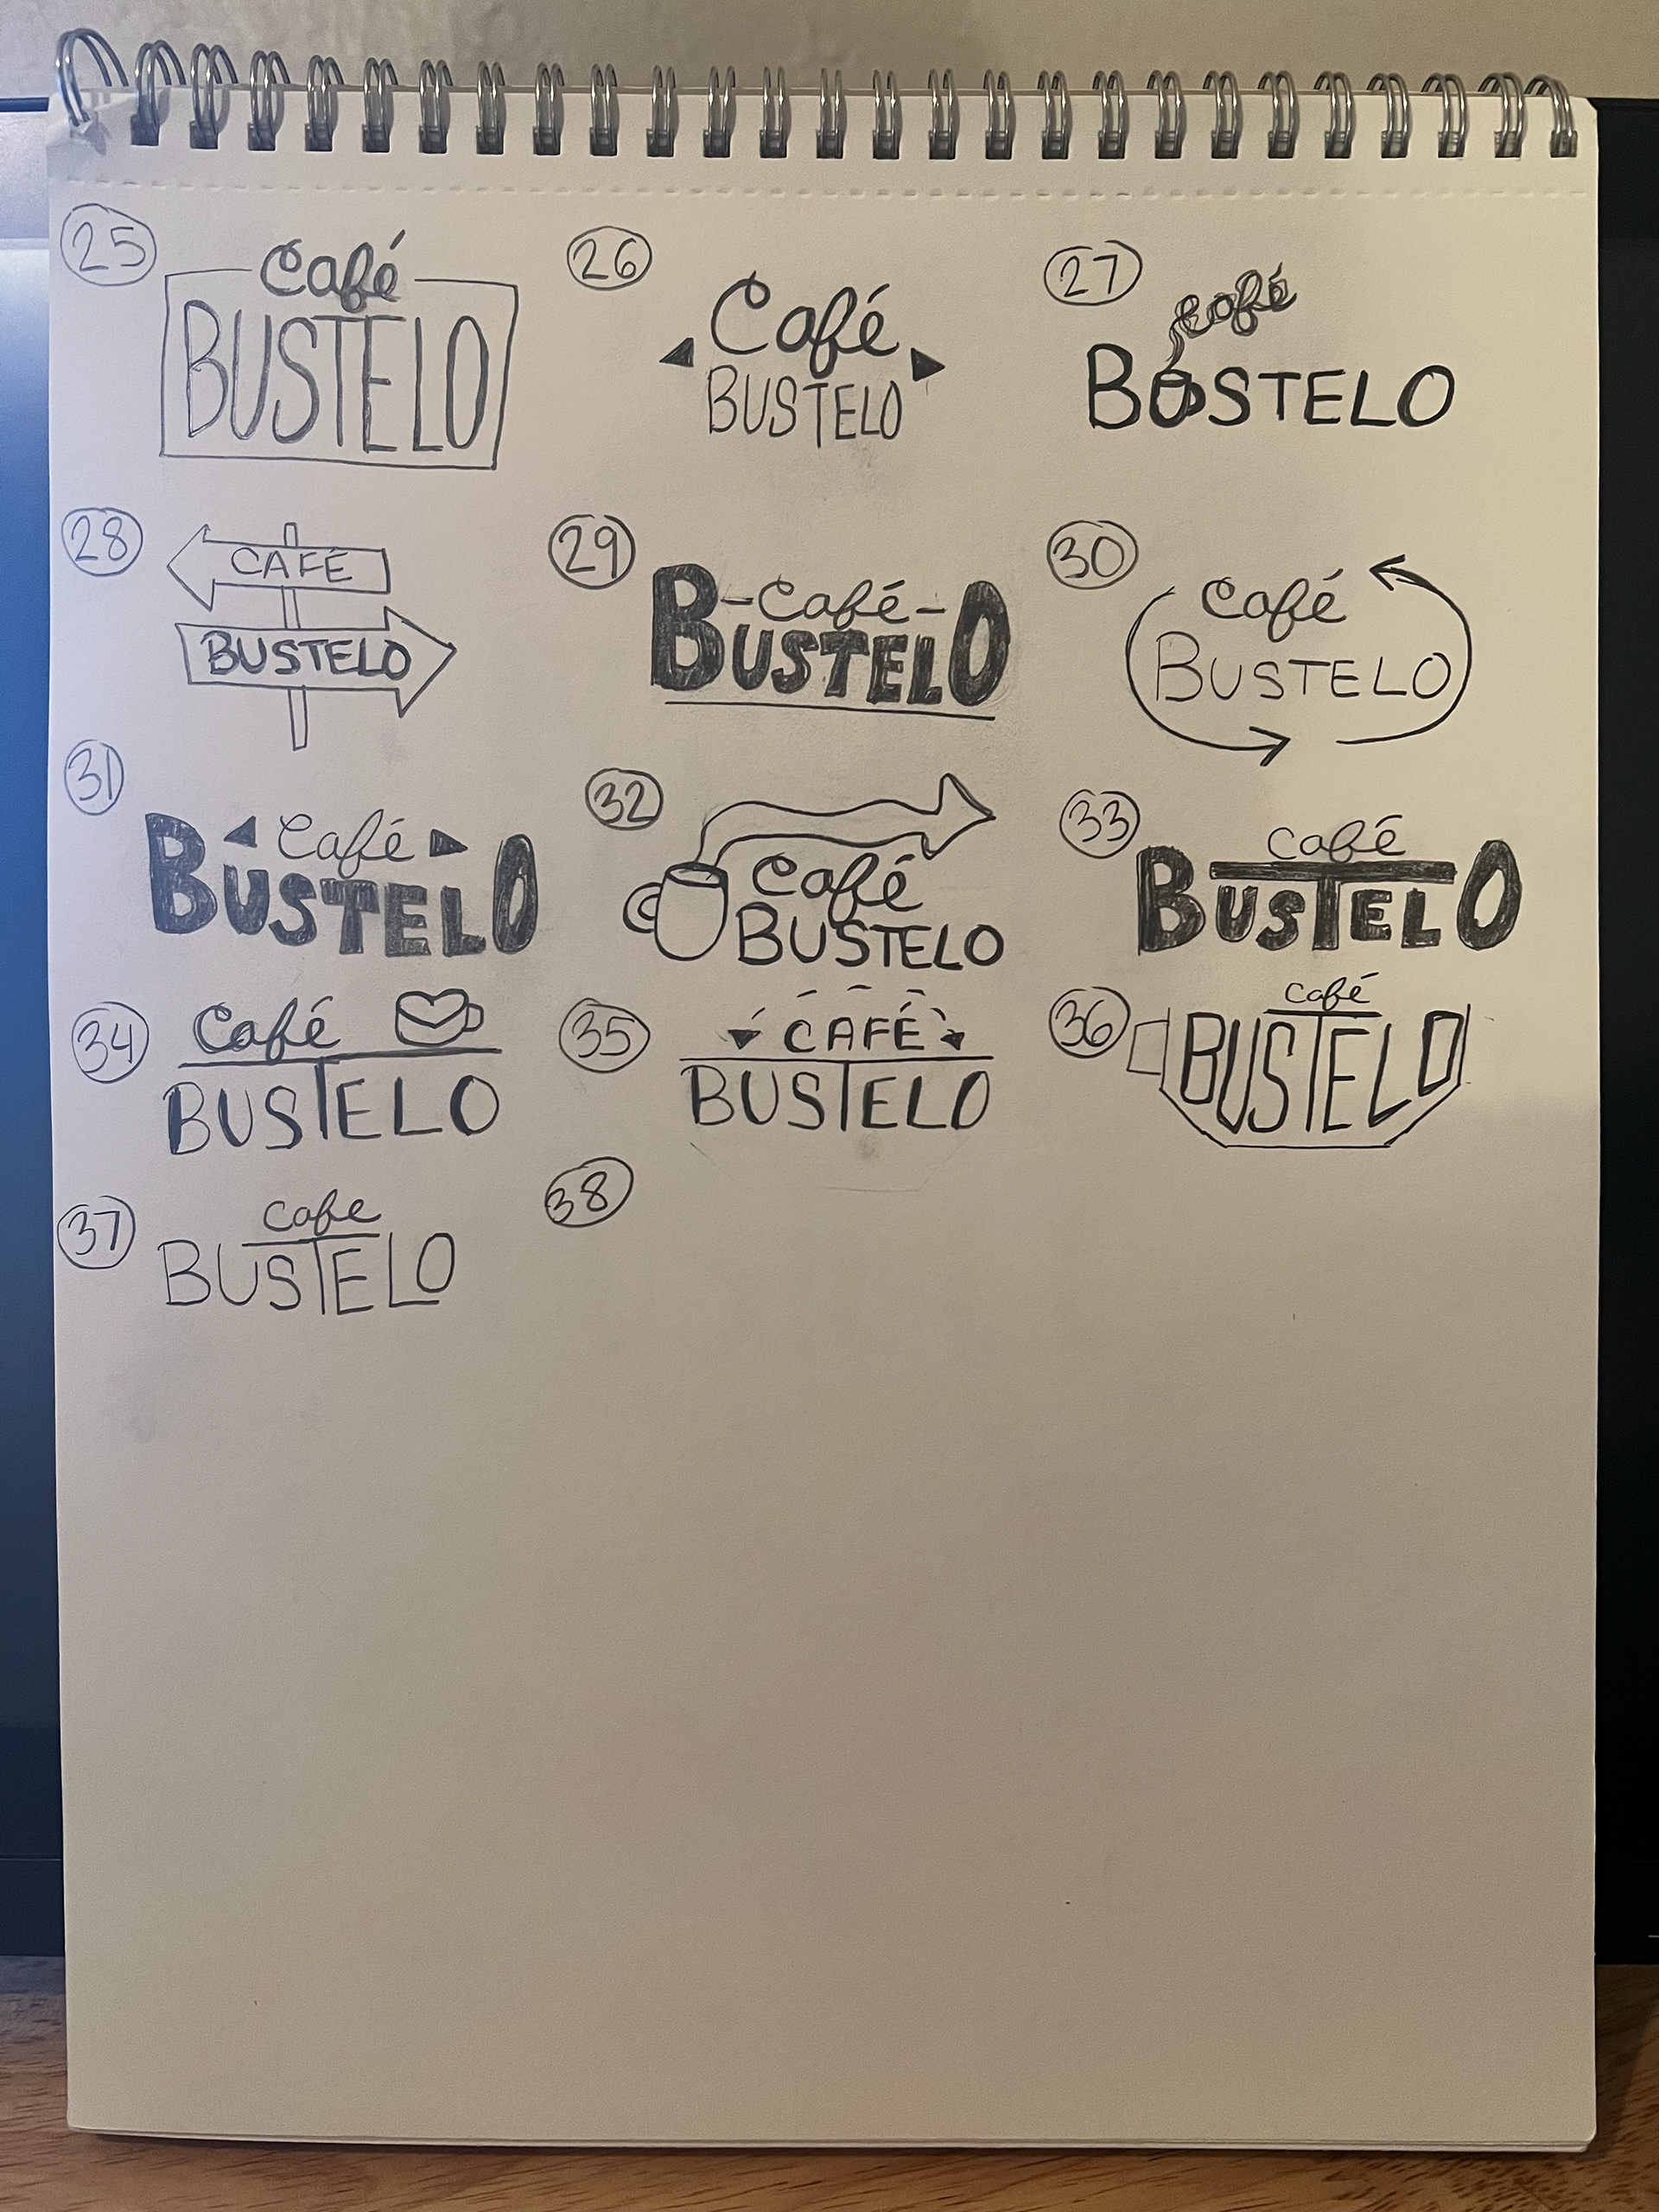 25
Café
BUSTELO
26
Café
BUSTELO
27
café
BUSTELO
28
CAFÉ
BUSTELO
29
-Café-
BUSTELO
30
Café
BUSTELO
31
Café
BUSTELO
32
Café
BUSTELO
33
Café
BUSTELO
34
Café
BUSTELO
35
CAFÉ
BUSTELO
36
Café
BUSTELO
37
Cafe
BUSTELO
38